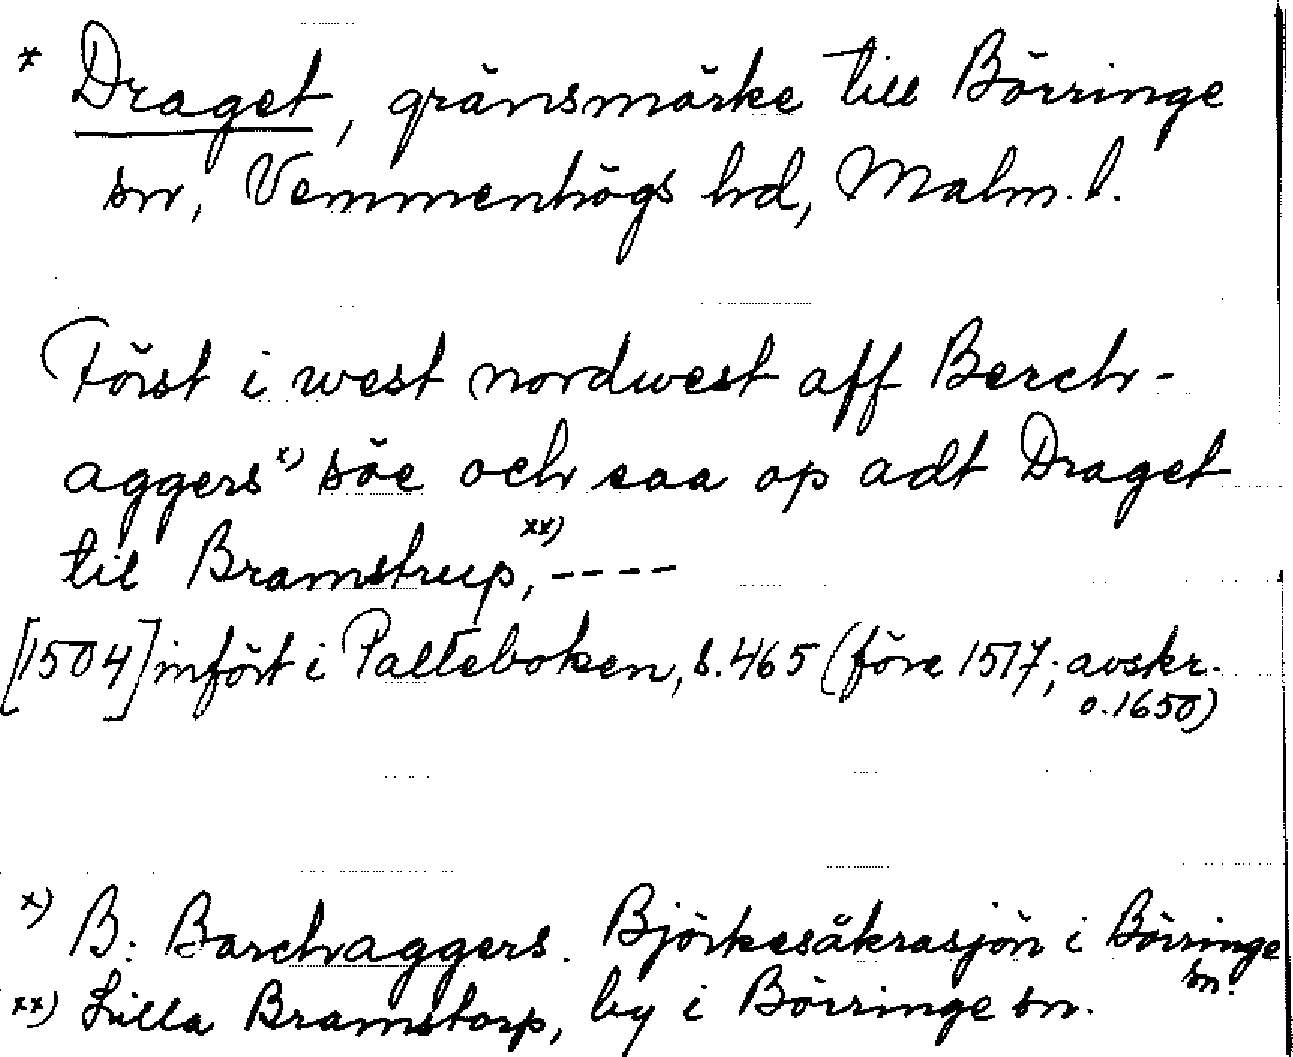 * Draget, gränsmärke till Börringe
sn, Vemmenhögs hd, Malm. l.
Först i west nordwest aff Berch-
aggers x) söe och saa op adt Draget
til Bramstrup, xx) ----
[1504] infört i Palteboken, s. 465 (före 1517; avskr.
o. 1650)
x) B: Barchaggers. Björkesåkrasjön i Börringe
sn.
xx) Lilla Bramstorp, by i Börringe sn.